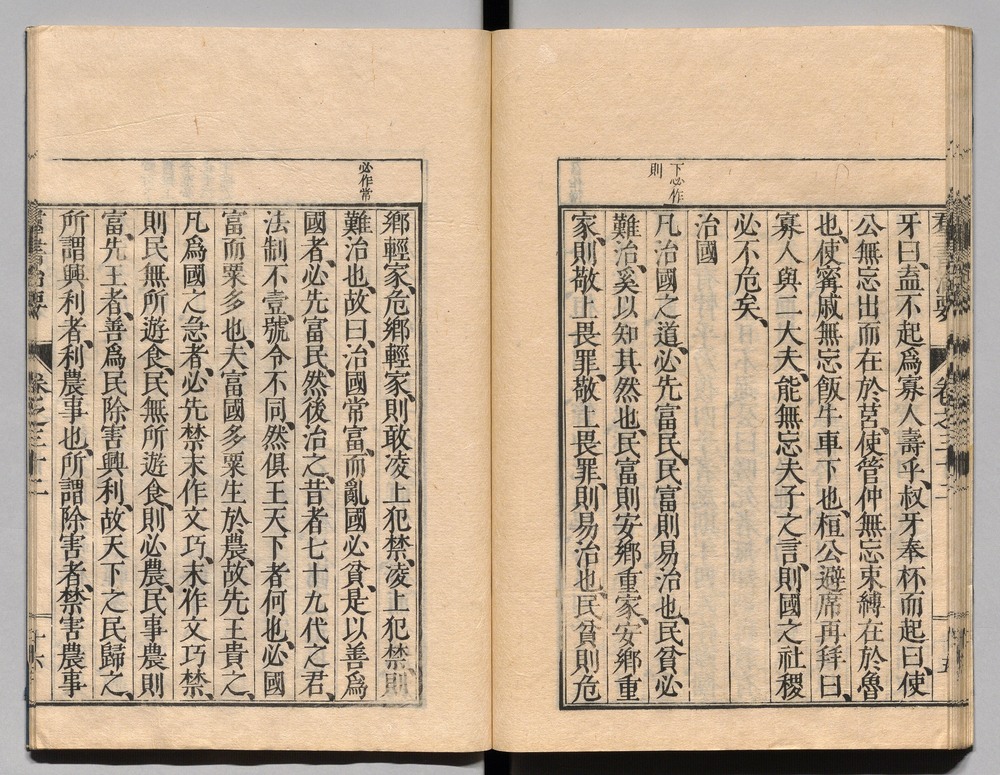 下必作
則
牙曰、盍不起爲寡人壽乎、叔牙奉杯而起曰、使
公無忘出而在於莒、使管仲無忘束縛在於魯
也、使甯戚無忘飯牛車下也、桓公避席再拜曰、
寡人與二大夫、能無忘夫子之言、則國之社稷
必不危矣、
治國
凡治國之道、必先富民、民富則易治也、民貧必
難治、奚以知其然也、民富則安鄉重家、安鄉重
家、則敬上畏罪、敬上畏罪、則易治也、民貧則危
必作常
鄉輕家、危鄉輕家、則敢凌上犯禁、凌上犯禁、則
難治也、故曰、治國常富、而亂國必貧、是以善爲
國者、必先富民、然後治之、昔者七十九代之君、
法制不壹、號令不同、然俱王天下者何也、必國
富而粟多也、夫富國多粟生於農、故先王貴之、
凡爲國之急者、必先禁末作文巧、末作文巧禁、
則民無所遊食、民無所遊食、則必農、民事農則
富、先王者、善爲民除害興利、故天下之民歸之、
所謂興利者、利農事也、所謂除害者、禁害農事
群書治要 卷之三十二 十六